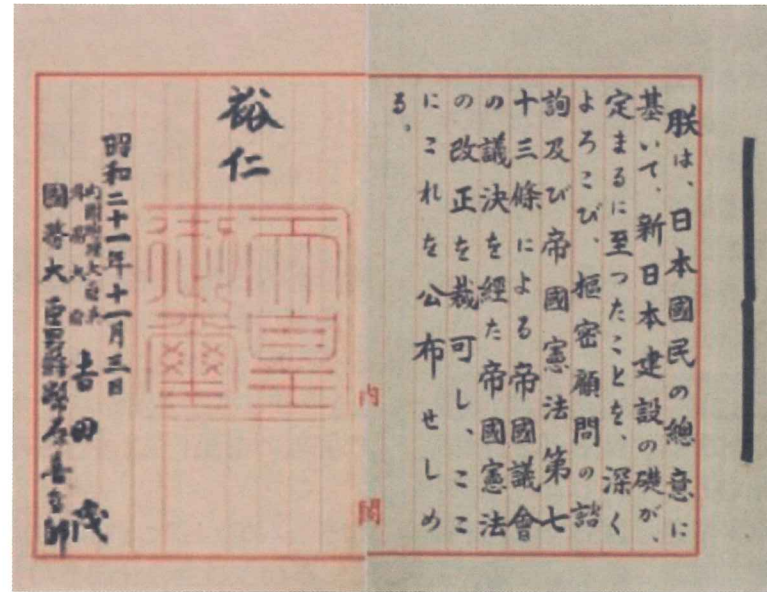 朕は、日本國民の總意に
基いて、新日本建設の礎が、
定まるに至つたことを、深く
よろこび、樞密顧問の諮
詢及び帝國憲法第七
十三條による帝國議會
の議決を経た帝國憲法
の改正を裁可し、ここ
にこれを公布せしめ
る。
裕仁
天皇御璽
昭和二十一年十一月三日
内閣總理大臣兼
外務大臣 吉田茂
國務大臣 男爵幣原喜重郎
内閣